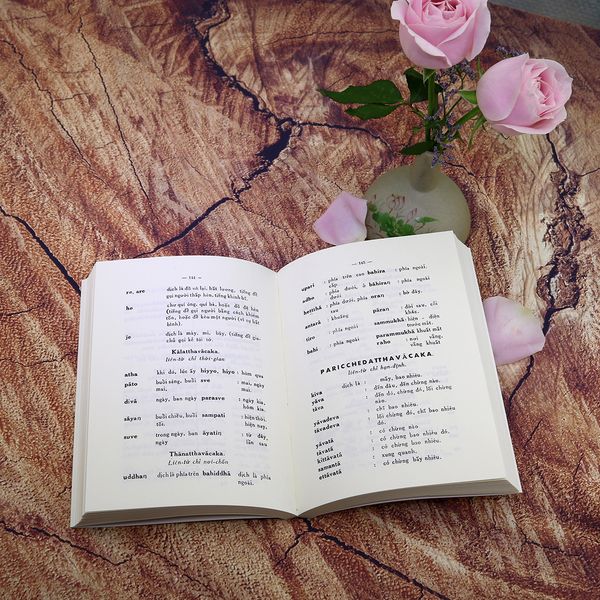 — 144 —
re, are dịch là đồ vô lại, bất lương, tiếng để
gọi người thấp hèn, tiếng khinh bỉ.
he chư quí ông, quí bà, hoặc đồ đê hèn
(tiếng gọi người bằng cách kính
tôn, hoặc để kêu một người vì sự bất
kính).
je dịch là mày, mi, bây, (tiếng gia
chủ gọi kẻ tôi tớ.
Kālatthavācaka.
Liên-từ chỉ thời-gian.
atha khi đó, lúc ấy hiyyo, hīyo : hôm qua.
pāto buổi sáng, buổi sve : mai, ngày
mai,
divā ngày, ban ngày parasve : ngày kia,
hôm kia.
sāyaṃ buổi chiều, buổi sampati : hiện thời,
tối. hiện nay,
suve trong ngày, ban āyatiṃ : từ đây,
ngày lần sau
Thānatthavācaka.
Liên-từ chỉ nơi-chốn
uddhaṃ dịch là phía trên bahiddhā dịch là phía
ngoài.
— 145 —
upari : phía trên cao bahira : phía ngoài.
adho : cấp
dưới, ở bāhiraṃ : phía ngoài.
heṭṭhā : phía dưới, oraṃ : bờ đây.
dưới
antarā : khoảng pāraṃ : dài sau, lối
khác.
tiro : phía ngoài sammukhā : hiện - diện
trước mắt.
bahi : phía ngoài parammukhā khuất mắt
raho : nơi vắng,
vắng khuất
PARICCHEDATTHAVĀCAKA.
liên-từ chỉ hạn-định.
kīva dịch là : mấy, bao nhiêu.
yāva : đến đâu, đến chừng nào.
tāva : đến đó, chừng đó, lối chừng
nào.
yāvadeva : chỉ bao nhiêu.
tāvadeva : đến đó, chừng đó.
yāvatā : có chừng nào
tāvatā : có chừng bao nhiêu đó.
kittāvatā : có chừng bao nhiêu.
samantā : xung quanh.
ettāvatā : có chừng bấy nhiêu.